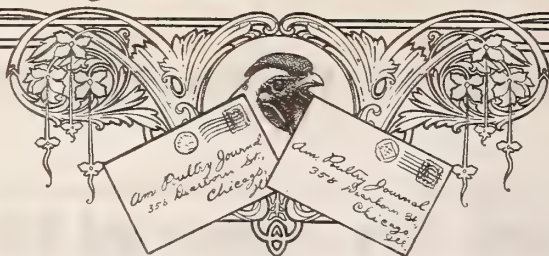 Am Poultry Journal
356 Dearborn St,
Chicago,
Ill
Am, Poultry Journal
356 Dearborn St,
Chicago,
Ill.